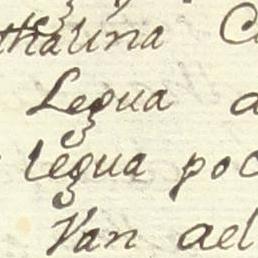 thalina C
Legua a
legua poc
Van ael